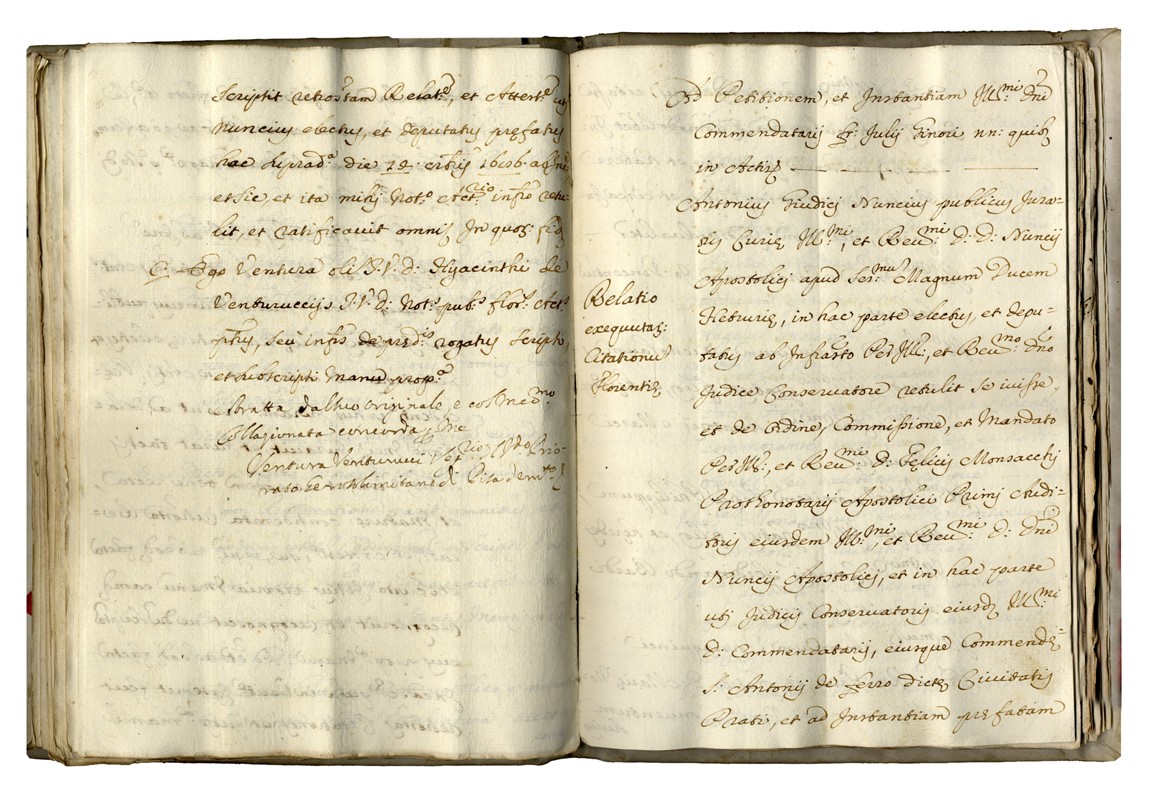 Scriptit retro.tam Relat.e, et Attest.e uti
Nuncius electus, et deputatus prefatus
hac suprad.a die 12 1696
et sic et ita mihi Not.o et Act.rio infr.o retu-
lit, et ratificavit omni In quor: fid.
C. Ego Ventura olim I.V.D. Hyacinthi de
Venturuccijs I.V.D. Not.s pub.s flor.s Act.s
p.tus, seu infr.s de pred.is rogatus scripsi,
et subscripsi manu prop.a
Stratta dall'uo originale, e col med.mo
Collazionata concorda
Ventura Venturucci Prio-
rato Gerosolimitano di Pisa
Relatio
exequutar:
Citationis
Florentie
Ad Petitionem, et Instantiam Ill.mi Dni
Commendatarij fr. Julij Ginori nn: quib9
in Actis
Antonius Giudici Nuncius publicus Jura-
tus Curie Ill.mi, et Rev.mi D: D: Nuncij
Apostolici apud Ser.mum Magnum Ducem
Hetrurie, in hac parte electus, et depu-
tatus ab Infrasto Per Ill:, et Rev.mo Dno
Judice Conservatore retulit se ivisse,
et de Ordine, Commissione, et Mandato
Per Ill:, et Rev.mi D: Felicis Monsacchj
Prothonotarij Apostolici Primj Audi-
toris eiusdem Ill.mi, et Rev.mi D: Dni
Nuncij Apostolici, et in hac parte
uti Judicis Conservatoris eiusd. Ill.mi
D: Commendatarij, eiusque Commende
S: Antonij de ferro dicte Civitatis
Prati, et ad Instantiam prefatam